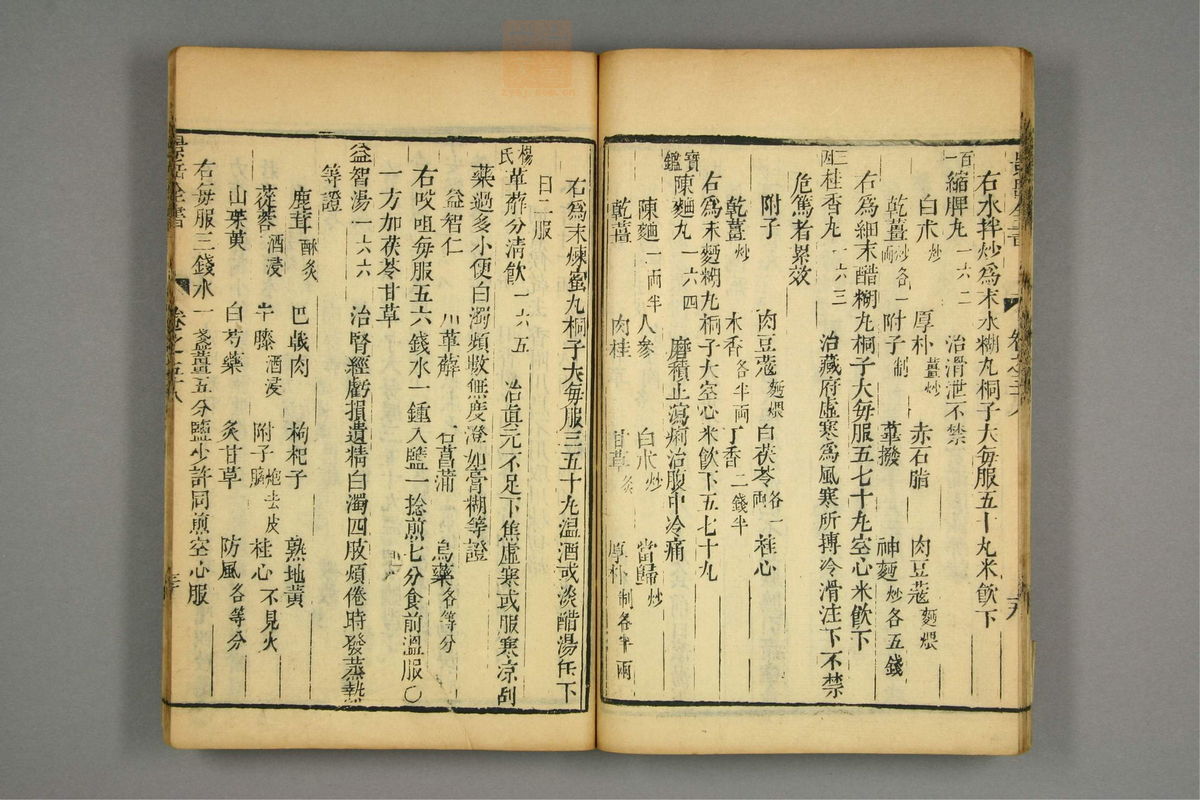 右水拌炒爲末水糊丸桐子大每服五十丸米飲下
百一縮脾丸一六二 治滑泄不禁
白朮炒 厚朴薑炒 赤石脂 肉豆蔻麵煨
乾薑炒各一兩 附子制 蓽撥 神麯炒各五錢
右爲細末醋糊丸桐子大每服五七十丸空心米飲下
三因桂香丸一六三 治藏府虛寒爲風寒所搏冷滑注下不禁
危篤者累效
附子 肉豆蔻麵煨 白茯苓各一兩 桂心
乾薑炒 木香各半兩 丁香二錢半
右爲末麵糊丸桐子大空心米飲下五七十丸
寶鑑陳麯丸一六四 磨積止瀉痢治腹中冷痛
陳麯一兩半 人參 白朮炒 當歸炒
乾薑 肉桂 甘草炙 厚朴制各半兩
右爲末煉蜜丸桐子大每服三五十丸温酒或淡醋湯任下
日二服
楊氏萆薢分清飲一六五 治眞元不足下焦虛寒或服寒涼剋
藥過多小便白濁頻數無度澄如膏糊等證
益智仁 川萆薢 石菖蒲 烏藥各等分
右㕮咀每服五六錢水一鍾入鹽一捻煎七分食前溫服○
一方加茯苓甘草
益智湯一六六 治腎經虧損遺精白濁四肢煩倦時發蒸熱
等證
鹿茸酥炙 巴戟肉 枸杞子 熟地黃
蓯蓉酒浸 牛膝酒浸 附子炮去皮臍 桂心不見火
山茱萸 白芍藥 炙甘草 防風各等分
右每服三錢水一盞薑五分鹽少許同煎空心服